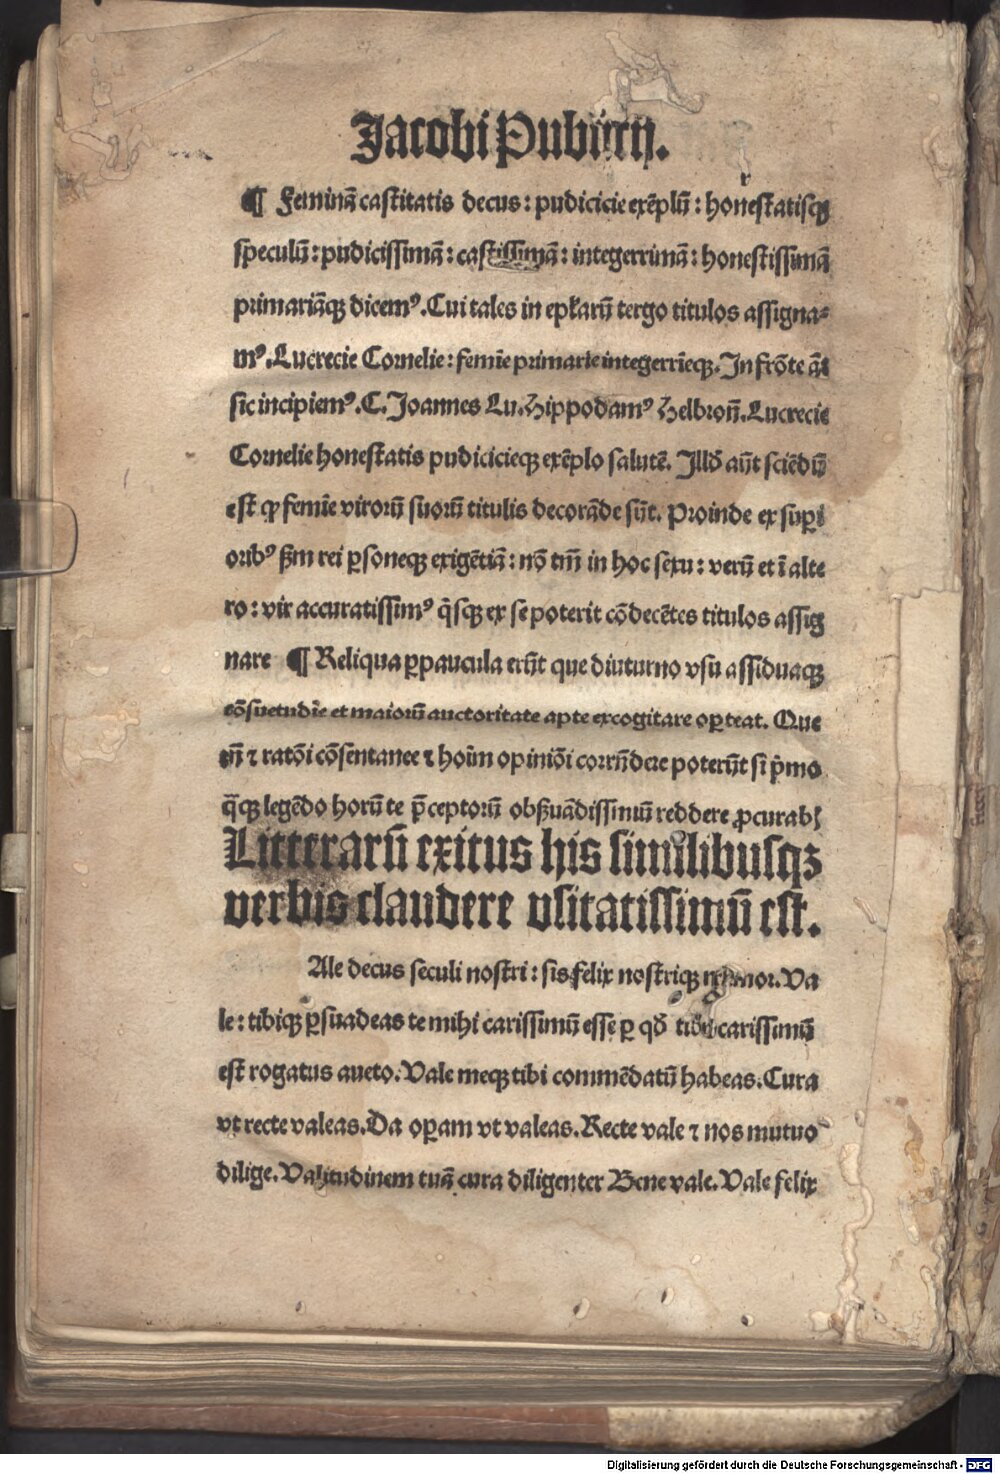 Jacobi Publicij.
¶ Feminā castitatis decus: pudicicie exēplū: honestatisqꝫ
speculū: pudicissimā: castissimā: integerrimā: honestissimā
primariāqꝫ dicemꝰ. Cui tales in epl̄arū tergo titulos assigna⸗
mꝰ. Lucrecie Cornelie: femīe primarie integerrīeqꝫ. In frōte āt
sic incipiemꝰ. C. Joannes Lu. Hippodamꝰ Helbron̄. Lucrecie
Cornelie honestatis pudicicieqꝫ exēplo salutē. Illd̄ aūt sciēdū
est ꝙ femīe virorū suorū titulis decorāde sūt. Proinde ex suꝑi
oribꝰ ẜm rei ꝑsoneqꝫ exigētiā: nō tm̄ in hoc sexu: verū et ī alte
ro: vir accuratissimꝰ q̄sqꝫ ex se poterit cōdecētes titulos assig
nare ¶ Reliqua ꝑpaucula erūt que diuturno vsu assiduaqꝫ
cōsuetudīe et maiorū auctoritate apte excogitare oꝑteat. Que
m̄ ⁊ ratōi cōsentanee ⁊ hoīm opiniōi corrn̄dere poterūt si p̄mo
q̄qꝫ legēdo horū te p̄ceptorū obẜuādissimū reddere ꝓcurabꝭ
Litterarū exitus his similibusqꝫ
verbis claudere vsitatissimū est.
Ale decus seculi nostri: sis felix nostriqꝫ memor. Va
le: tibiqꝫ ꝑsuadeas te mihi carissimū esse ꝑ qd̄ tibi carissimū
est rogatus aueto. Vale meqꝫ tibi commēdatū habeas. Cura
vt recte valeas. Da oꝑam vt valeas. Recte vale ⁊ nos mutuo
dilige. Valitudinem tuā cura diligenter Bene vale. Vale felix
Digitalisierung gefördert durch die Deutsche Forschungsgemeinschaft - DFG